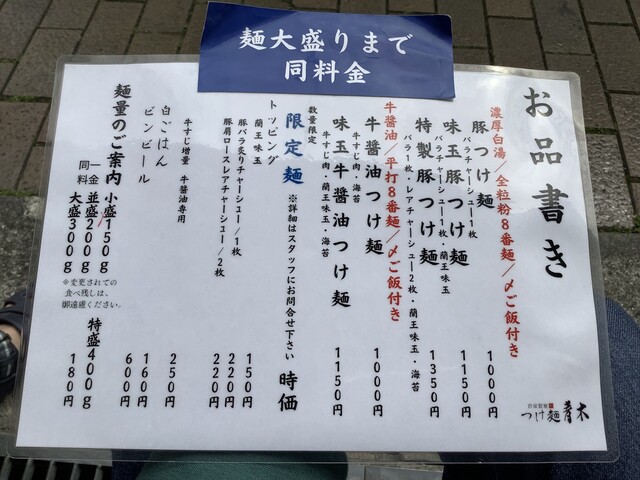 麺大盛りまで
同料金
お品書き
濃厚白湯/全粒粉8番麺/〆ご飯付き
豚つけ麺 1000円
バラチャーシュー1枚
味玉豚つけ麺 1150円
バラチャーシュー1枚・蘭王味玉
特製豚つけ麺 1350円
バラ1枚・レアチャーシュー2枚・蘭王味玉・海苔
牛醤油/平打8番麺/〆ご飯付き
牛醤油つけ麺 1000円
牛すじ肉・海苔
味玉牛醤油つけ麺 1150円
牛すじ肉・蘭王味玉・海苔
数量限定
限定麺 ※詳細はスタッフにお問合せ下さい 時価
トッピング
蘭王味玉 150円
豚バラ炙りチャーシュー/1枚 220円
豚肩ロースレアチャーシュー/2枚 220円
牛すじ増量 牛醤油専用 250円
白ごはん 160円
ビンビール 600円
麺量のご案内
同一料金
小盛150g
並盛200g
大盛300g
※変更されての
食べ残しは、
御遠慮ください。
特盛400g 180円
つけ麺 青木